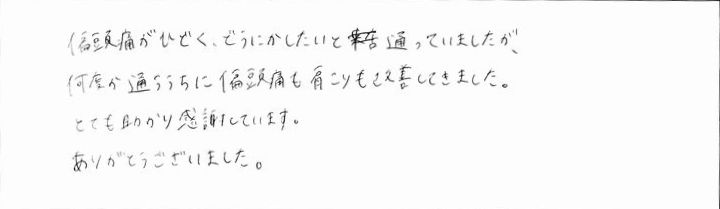 偏頭痛がひどく、どうにかしたいと通っていましたが、
何度か通ううちに偏頭痛も肩こりも改善してきました。
とても助かり感謝しています。
ありがとうございました。